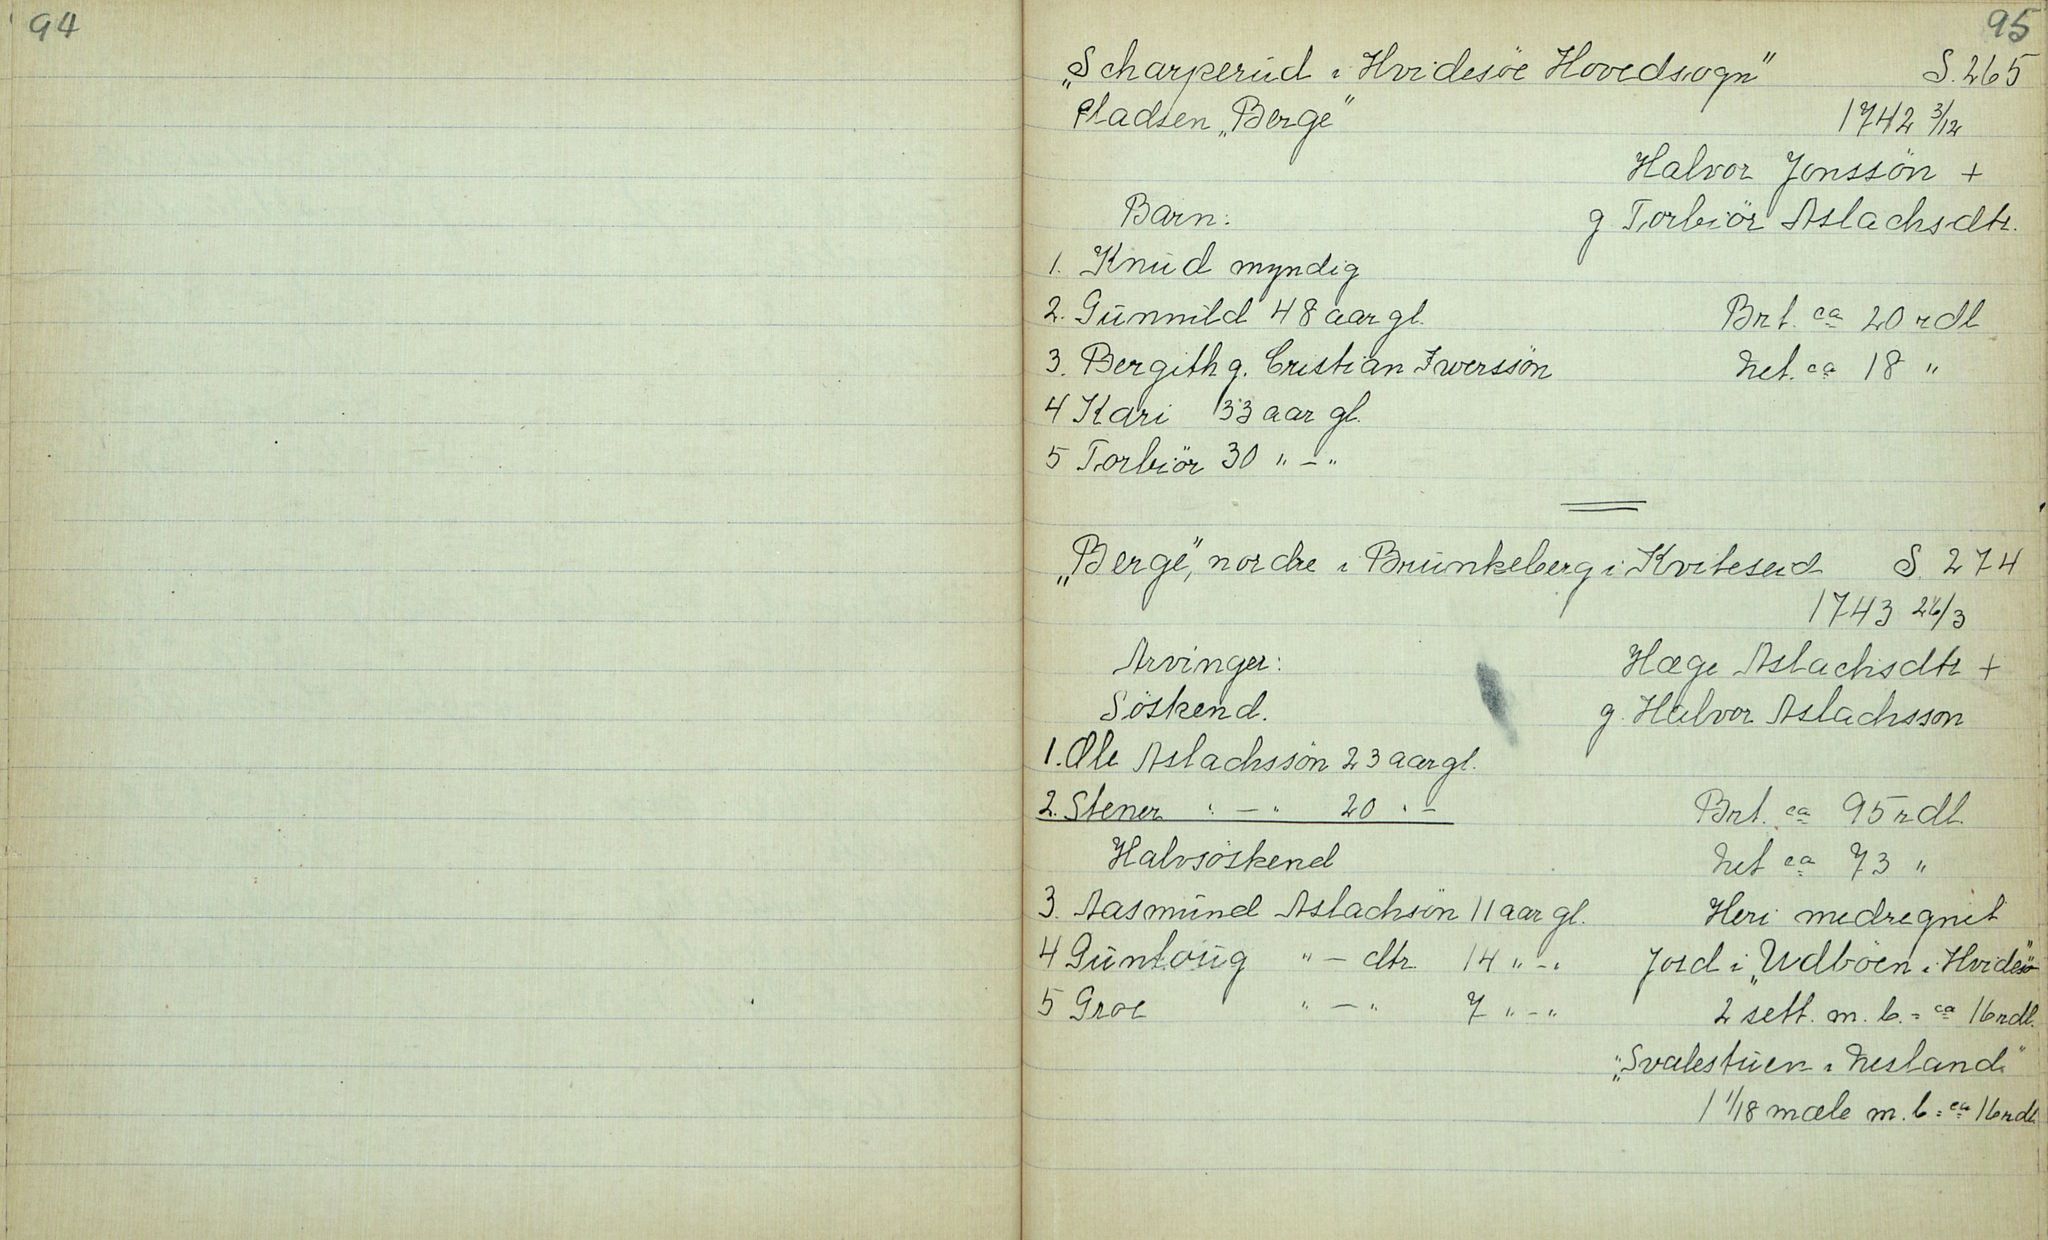 94
95
„Scharperud i Hvidesöe Hovedsogn" S. 265
Pladsen „Berge" 1742 3/12
Halvor Jonssön +
Barn: g. Torbiör Aslachsdtr.
1. Knud myndig
2. Gunnild 48 aar gl. Brt. ca 20 rdl
3. Bergith g. Cristian Iwerssön Net. ca 18 "
4 Kari 33 aar gl.
5 Torbiör 30 " – "
„Berge", nordre i Brunkeberg i Kviteseid S. 274
1743 26/3
Arvinger: Hæge Aslachsdtr +
Söskend. g. Halvor Aslachsson
1. Ole Aslachssön 23 aar gl.
2. Stener " – " 20 " – Brt. ca 95 rdl.
Halvsöskend Net ca 73 "
3. Aasmund Aslachsön 11 aar gl. Heri medregnet
4 Guntoug " – dtr. 14 " – " Jord i „Udböen i Hvidesö"
5 Groe " – " 7 " – " 2 sett. m. b. = ca 16 rdl.
„Svalestuen i Nesland"
1 1/18 mæle m. b = ca 16 rdl.